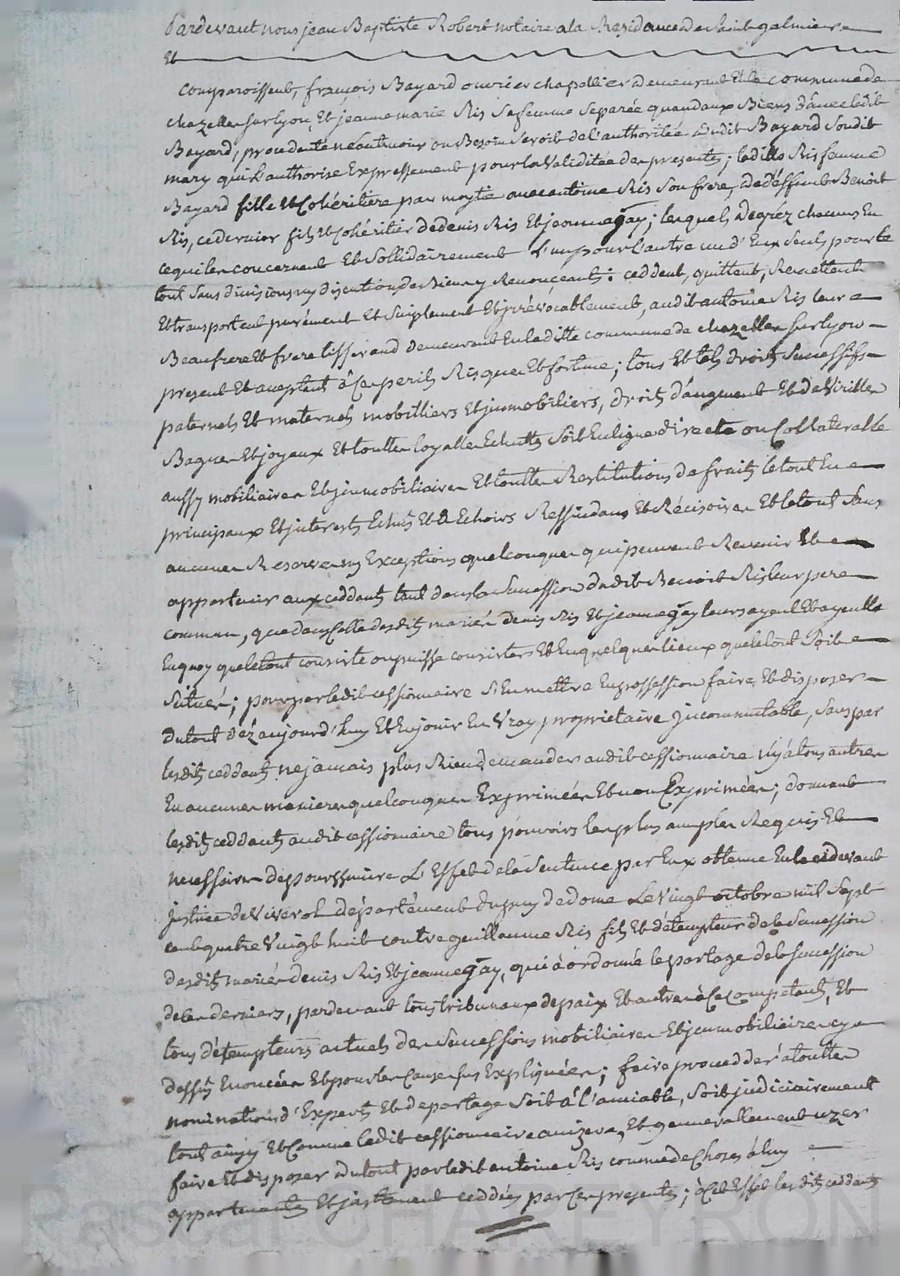 Pardevant nous jean Baptiste Robert notaire a la Residance de Saint galmier
Et
Comparoissent, francois Bayard ouvrier chapellier demeurant Et la commune de
chazelles sur lyon, Et jeanne marie Ris Sa femme Separée quand aux Biens d'avec ledit
Bayard, procedante néantmoins ou Besoin Seroit de l'authoritée dudit Bayard Sondit
mary qui L'authorise Expressement pour la Validitée des presentes; laditte Ris femme
Bayard fille Et Cohéritiere par moytié avec antoine Ris Son frere, de déffunt Benoit
Ris, ce dernier fils Et Cohéritier de denis Ris Et jeanne gay; lesquels de gréz chacuns En
ce qui les concernent Et Sollidairement L'un pour l'autre un d'Eux Seuls pour le
tout Sans divisions ny discution de Biens y Renonceant: ceddent, quittent, Remettent
Et transportent purement Et Simplement Et jrrévocablement, audit antoine Ris leur
Beaufrere Et frere tisserand demeurant En laditte commune de chazelles Sur lyon
present Et aceptant à Ses perils Risques Et fortune; tous Et tels droits Successifs
paternels Et maternels mobilliers Et jmmobiliers, droits d'augment Et de Virille
Bagues Et joyaux Et touttes loyalles Echuttes Soit En ligne directe ou Collateralle
aussy mobiliaires Et jmmobiliaires Et touttes Restitutions de fruits le tout En
principaux Et jnterests Echus Et à Echoirs Ressindans Et Récisoires Et le tout Sans
aucunes Reserves ny Exceptions quelconques qui peuvent Revenir Et
appartenir aux ceddants tant dans la Sucession dudit Benoit Ris leur pere
commun, que dans Celle desdits mariés denis Ris Et jeanne gay leurs ayeul Et ayeulle
En quoy que le tout consiste ou puisse consister Et En quelques lieux que le tout Soit
Situés; pour par ledit cessionnaire S'En mettre En possession faire Et disposer
du tout déz aujourd'huy Et En jouir En Vray proprietaire jncommutable, Sans par
lesdits ceddants ne jamais plus Rien demander audit cessionnaire ny à tous autres
En aucunes manieres quelconques Exprimées Et non Exprimées; donnant
lesdits ceddants audit cessionnaire tous pouvoirs les plus amples Requis Et
necessaires de poursuivre L'Effet de la Sentence par Eux obtenue En la cidevant
justice de Viverol département du puy de dome Le Vingt octobre mil Sept
cent quatre Vingt huit contre guillaume Ris fils Et détempteur de la Sucession
desdits mariés denis Ris Et jeanne gay, qui à ordonné le partage de la Sucession
de ces derniers, pardevant tous tribunaux de paix Et autres à Ce Competents, Et
tous détempteurs actuels des Sucessions mobiliaires Et jmmobiliaires cy
dessus Enoncées Et pour les Causes Sus Expliquées; faire procedder à touttes
nominations d'Experts Et de partage Soit à l'amiable, Soit judiciairement
tout ainsy Et Comme ledit cessionnaire avizera, Et generallement uzer
faire Et disposer du tout par ledit antoine Ris comme de Chozes à luy
appartenantes Et justement ceddées par Ces presentes; à Cet Effet lesdits ceddants
Pascal CHAREYRON